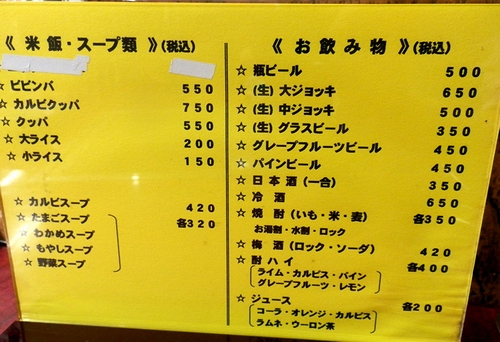 《 米飯・スープ類 》(税込)
☆ ビビンバ 550
☆ カルビクッパ 750
☆ クッパ 550
☆ 大ライス 200
☆ 小ライス 150
☆ カルビスープ 420
☆ たまごスープ 各320
☆ わかめスープ
☆ もやしスープ
☆ 野菜スープ
《 お飲み物 》(税込)
☆ 瓶ビール 500
☆ (生) 大ジョッキ 650
☆ (生) 中ジョッキ 500
☆ (生) グラスビール 350
☆ グレープフルーツビール 450
☆ パインビール 450
☆ 日本酒 (一合) 350
☆ 冷 酒 650
☆ 焼 酎 (いも・米・麦) 各350
お湯割・水割・ロック
☆ 梅 酒 (ロック・ソーダ) 420
☆ 酎ハイ 各400
ライム・カルピス・パイン
グレープフルーツ・レモン
☆ ジュース 各200
コーラ・オレンジ・カルピス
ラムネ・ウーロン茶